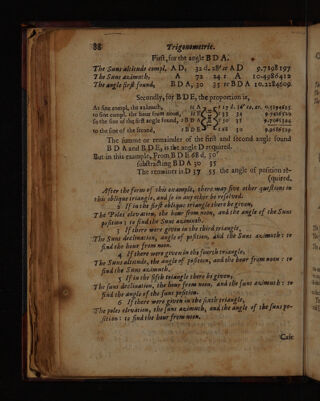 88 Trigonometrie.
First, for the angle B D A.
The Suns altitude compl. A D, 32 d. 28' or A D 9.7298197
The Suns azimuth, A 72 24 s. A 10.4986412
The angle first found, B D A, 30 35 tr B D A 10.2284609
Secondly, for B D E, the proportion is,
As sine compl. the azimuth,
to sine compl. the hour from noon,
So the sine of the first angle found,
to the sine of the second,
The summe or remainder of the first and second angle found
B D A and B D E, is the angle D required.
But in this example, From B D E 68 d. 30'
substracting B D A 30 35
The remainer is D 37 55 the angle of position re-
(quired.
After the form of this example, there may five other questions in
this oblique triangle, and so in any other be resolved.
2 If in the first oblique triangle there be given,
The Poles elevation, the hour from noon, and the angle of the Suns
position: to find the Suns azimuth.
3 If there were given in the third triangle,
The Suns declination, angle of position, and the Suns azimuth: to
find the hour from noon.
4 If there were given in the fourth triangle,
The Suns altitude, the angle of position, and the hour from noon: to
find the Suns azimuth.
5 If in the fifth triangle there be given,
The suns declination, the hour from noon, and the suns azimuth: to
find the angle of the suns position.
6 If there were given in the sixth triangle,
The poles elevation, the suns azimuth, and the angle of the suns po-
sition: to find the hour from noon.
Case